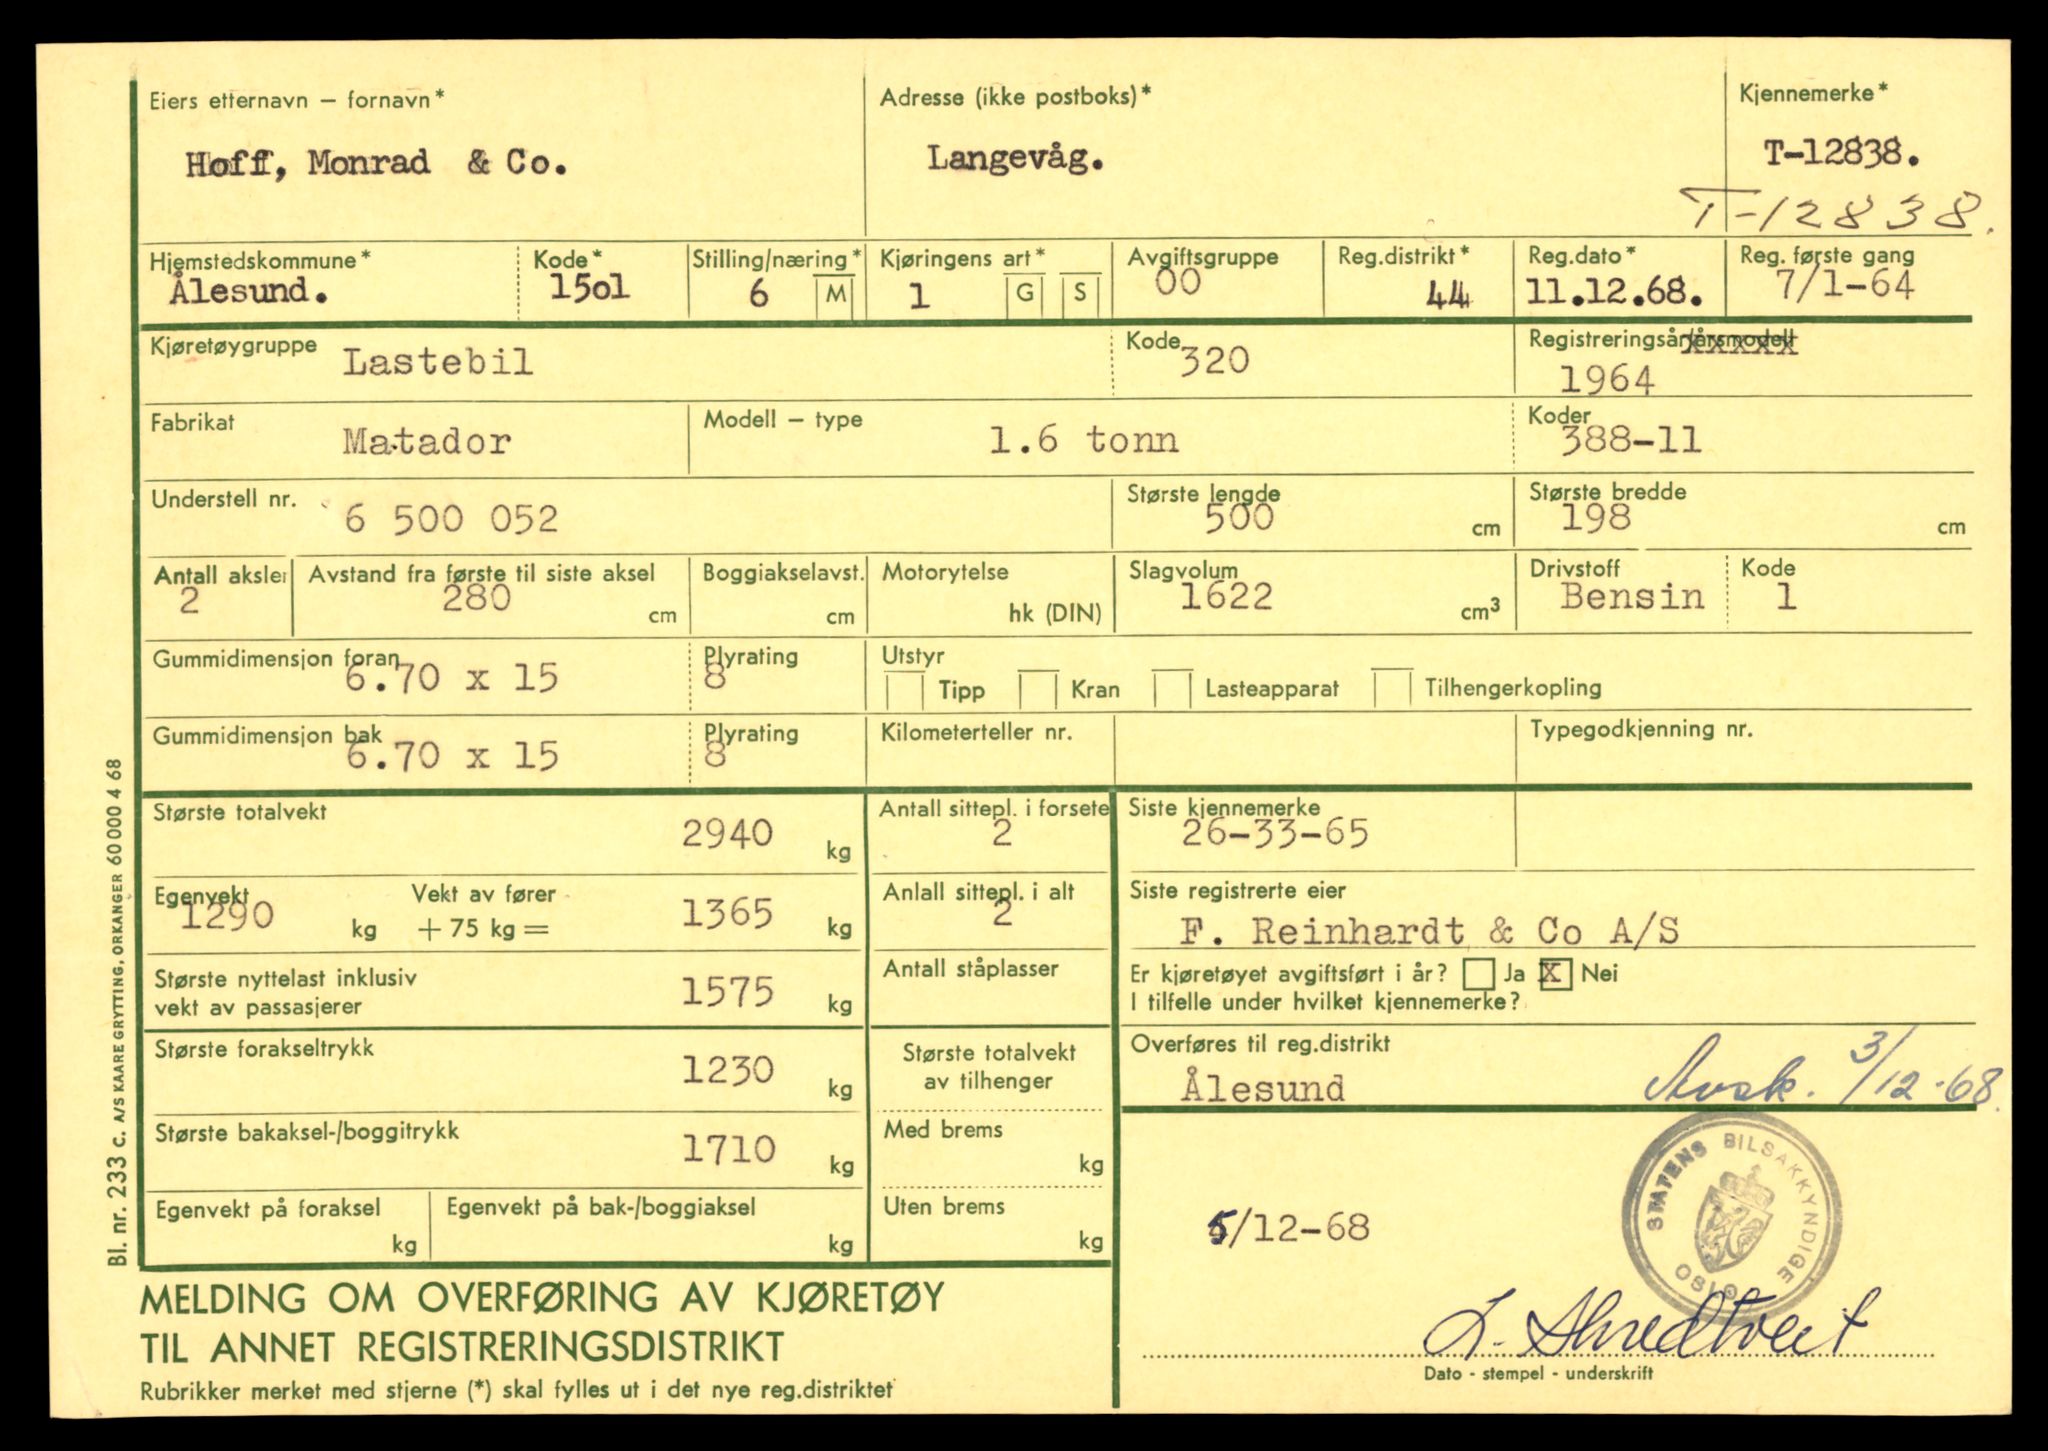 Eiers etternavn – fornavn*
Hoff, Monrad & Co.
Adresse (ikke postboks)*
Langevåg.
Kjennemerke*
T-12838.
T-12838.
Hjemstedskommune*
Ålesund.
Kode*
15o1
Stilling/næring*
6 M
Kjøringens art*
1 G S
Avgiftsgruppe
00
Reg.distrikt*
44
Reg.dato*
11.12.68.
Reg. første gang
7/1-64
Kjøretøygruppe
Lastebil
Kode
320
Registreringsår/årsmodell
xxxxx
1964
Fabrikat
Matador
Modell – type
1.6 tonn
Koder
388-11
Understell nr.
6 500 052
Største lengde
500 cm
Største bredde
198 cm
Antall aksler
2
Avstand fra første til siste aksel
280 cm
Boggiakselavst.
cm
Motorytelse
hk (DIN)
Slagvolum
1622 cm³
Drivstoff
Bensin
Kode
1
Gummidimensjon foran
6.70 x 15
Plyrating
8
Utstyr
Tipp Kran Lasteapparat Tilhengerkopling
Gummidimensjon bak
6.70 x 15
Plyrating
8
Kilometerteller nr.
Typegodkjenning nr.
Største totalvekt
2940 kg
Antall sittepl. i forsete
2
Siste kjennemerke
26-33-65
Egenvekt
1290 kg
Vekt av fører
+ 75 kg = 1365 kg
Anlall sittepl. i alt
2
Siste registrerte eier
F. Reinhardt & Co A/S
Største nyttelast inklusiv
vekt av passasjerer
1575 kg
Antall ståplasser
Er kjøretøyet avgiftsført i år? Ja X Nei
I tilfelle under hvilket kjennemerke?
Største forakseltrykk
1230 kg
Største totalvekt
av tilhenger
Overføres til reg.distrikt
Ålesund
3/12-68.
Største bakaksel-/boggitrykk
1710 kg
Med brems
kg
Egenvekt på foraksel
kg
Egenvekt på bak-/boggiaksel
kg
Uten brems
kg
5/12-68
STATENS BILSAKKYNDIGE
OSLO
Dato - stempel - underskrift
MELDING OM OVERFØRING AV KJØRETØY
TIL ANNET REGISTRERINGSDISTRIKT
Rubrikker merket med stjerne (*) skal fylles ut i det nye reg.distriktet
Bl. nr. 233 C. A/S KAARE GRYTTING, ORKANGER 60 000 4 68